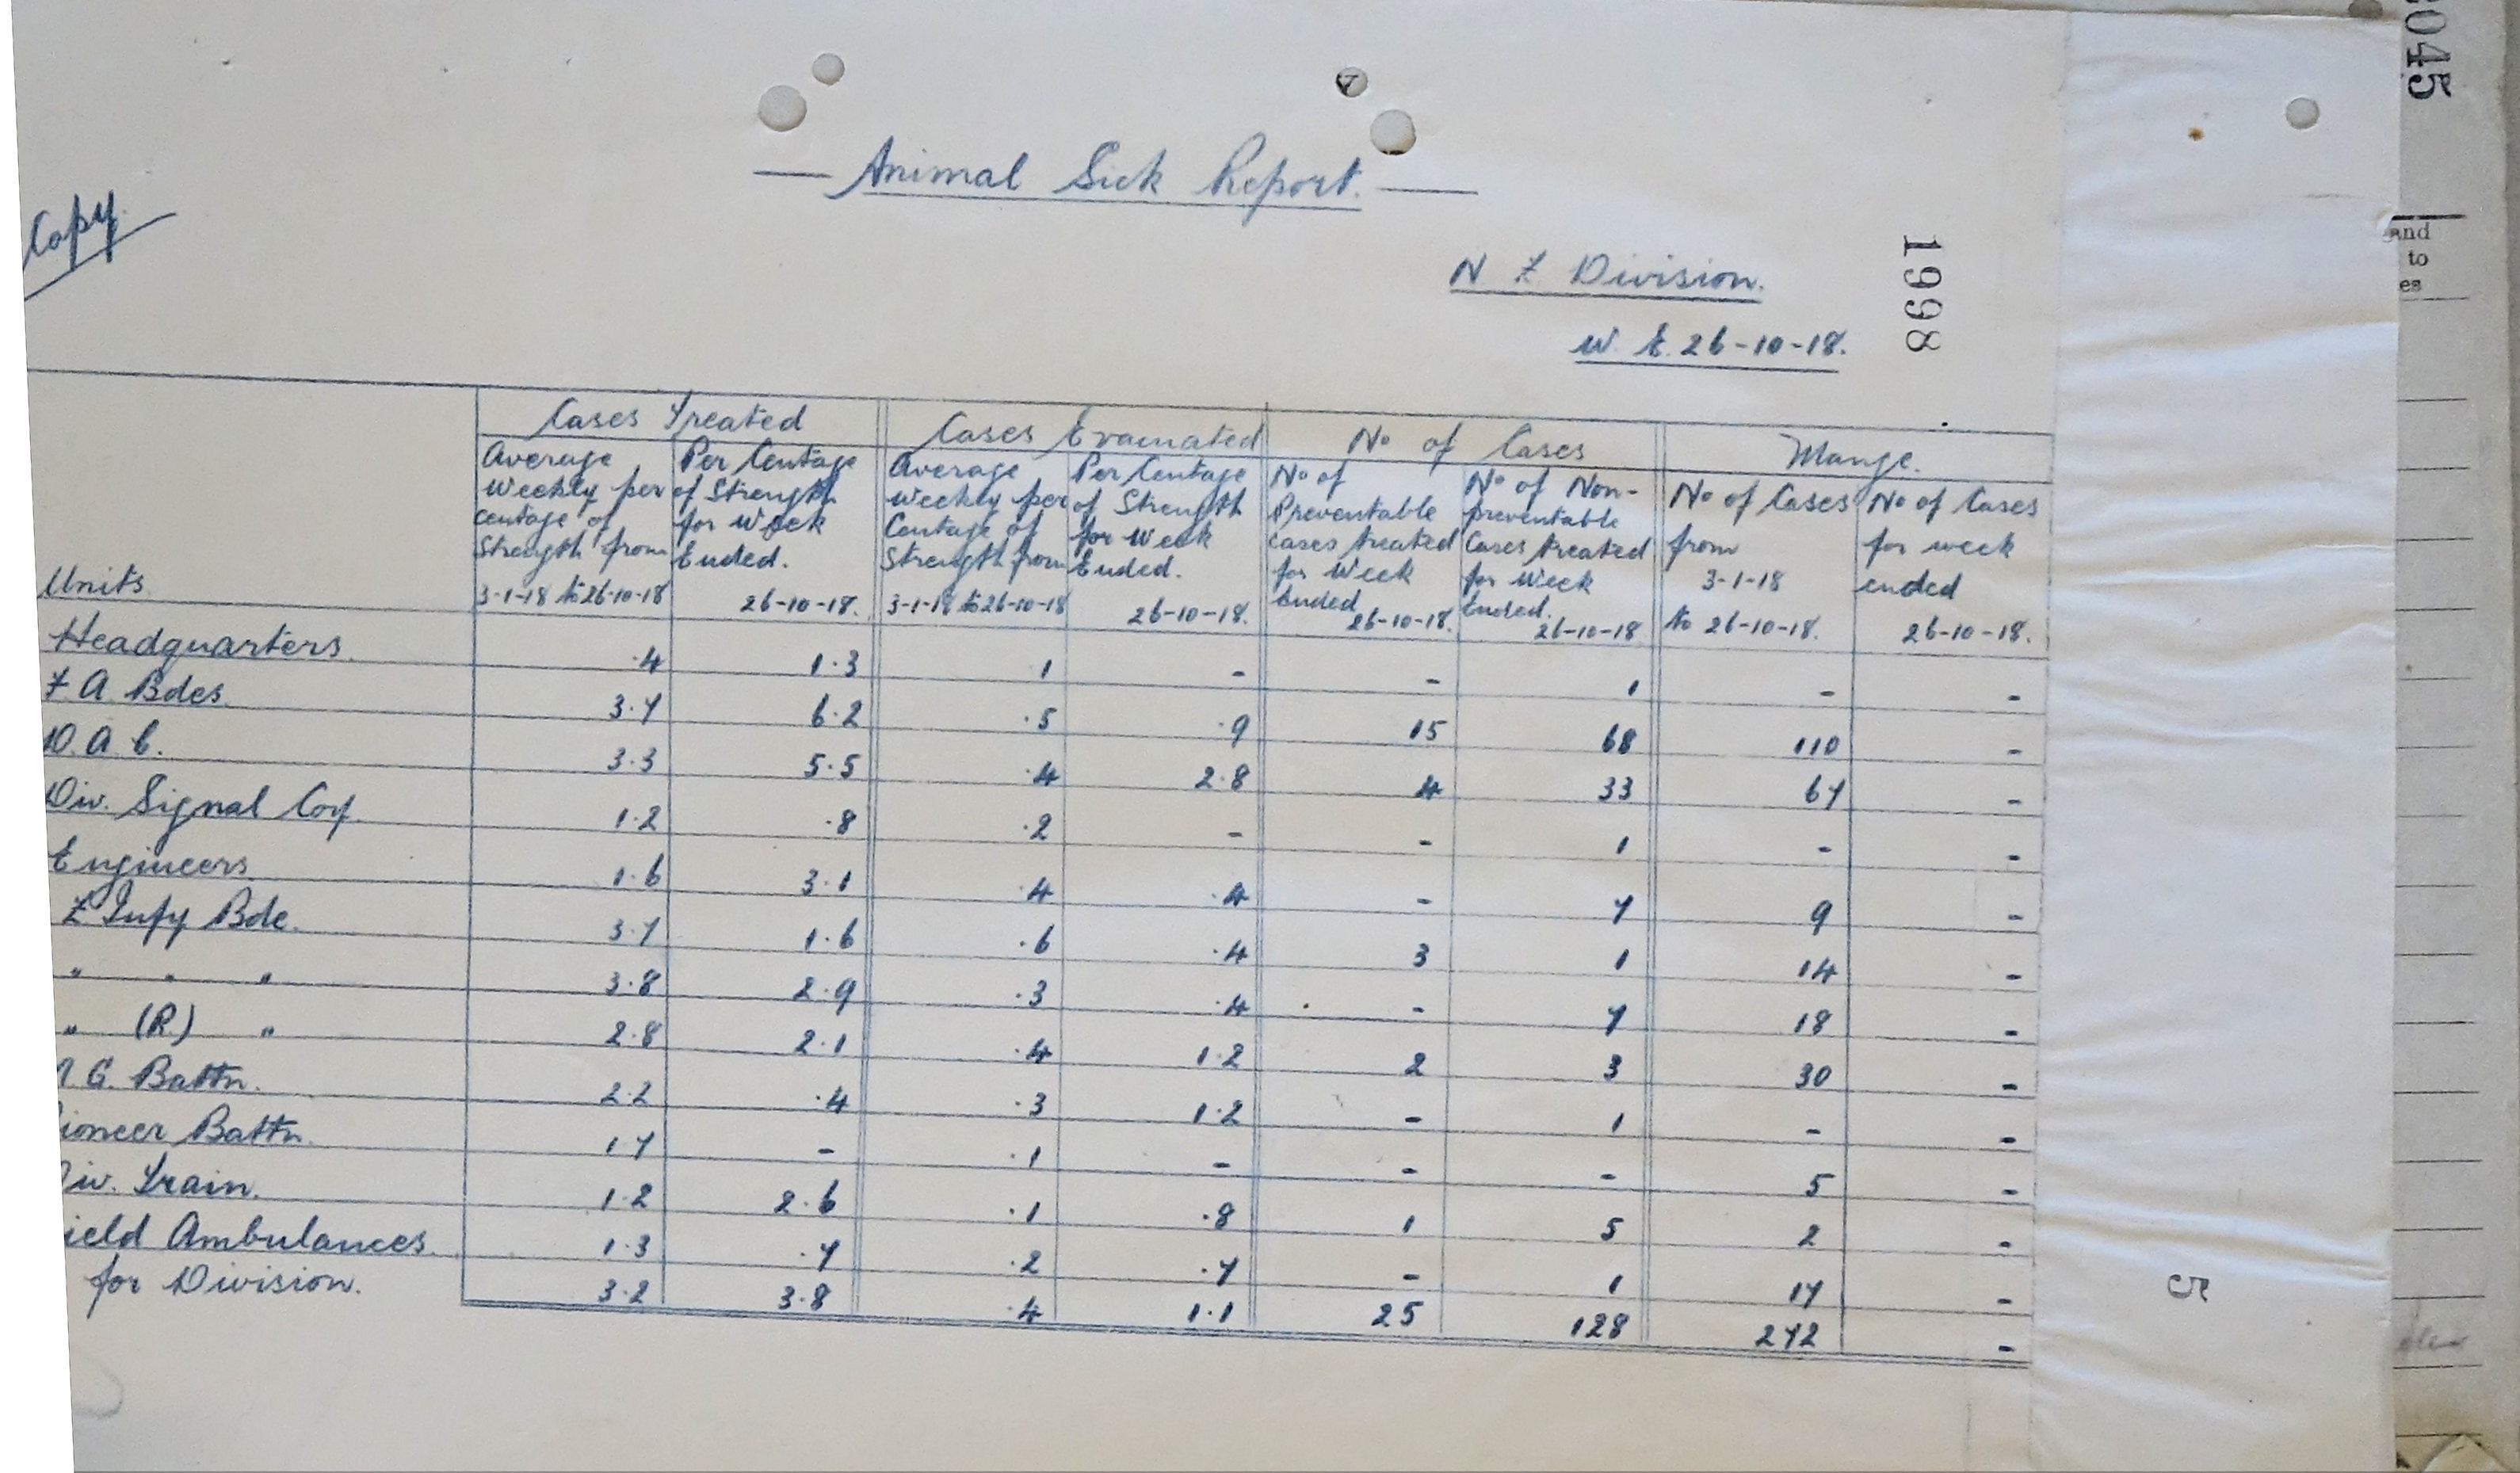 Copy.
Animal Sick Report.
N Z Division.
W. E. 26-10-18.
1998
Cases Treated Cases Evacuated No of Cases Mange.
Units
Average Weekly per centage of Strength from 3-1-18 to 26-10-18
Per Centage of Strength for Week Ended. 26-10-18.
Average Weekly per Centage of Strength from 3-1-18 to 26-10-18
Per Centage of Strength for Week Ended. 26-10-18.
No of Preventable cases treated for Week Ended 26-10-18.
No of Non-preventable Cases treated for Week Ended. 26-10-18
No of Cases from 3-1-18 to 26-10-18.
No of Cases for week ended 26-10-18.
Headquarters. .4 1.3 1 - - 1 - -
F A Bdes. 3.7 6.2 .5 .9 15 68 110 -
D. A. C. 3.3 5.5 .4 2.8 4 33 67 -
Div. Signal Coy. 1.2 .8 .2 - - 1 - -
Engineers. 1.6 3.1 .4 .4 - 7 9 -
Z Infy Bde. 3.7 1.6 .6 .4 3 1 14 -
" " " 3.8 2.9 .3 .4 - 7 18 -
" (R) " 2.8 2.1 .4 1.2 2 3 30 -
G. Battn. 2.2 .4 .3 1.2 - 1 - -
ioneer Battn. 1.7 - .1 - - - 5 -
iv. Train. 1.2 2.6 .1 .8 1 5 2 -
ield Ambulances. 1.3 .7 .2 .7 - 1 17 -
for Division. 3.2 3.8 .4 1.1 25 128 272 -
5
2045
and
to
es